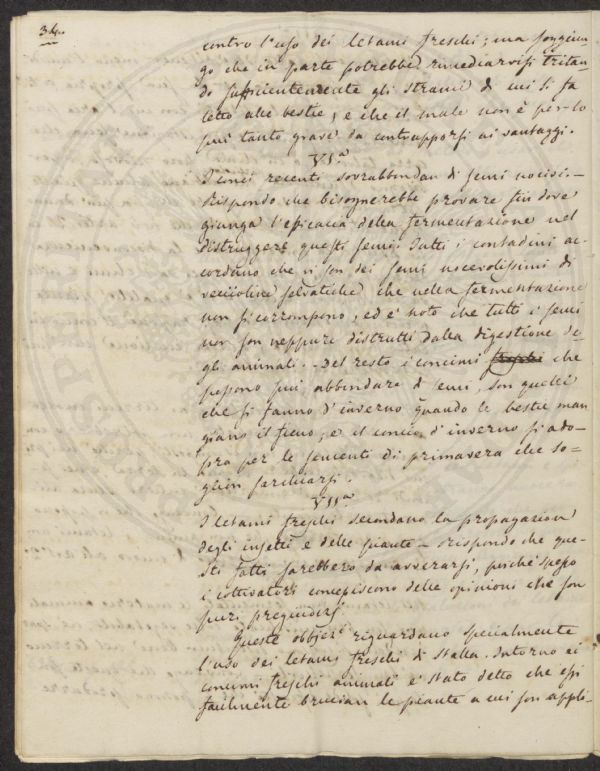 34.
contro l'uso dei letami freschi; ma soggiun-
go che in parte potrebbe rimediarvisi tritan-
do sufficientemente gli strami di cui si fa
letto alle bestie, e che il male non è per lo
più tanto grave da contrapporsi ai vantaggi.
VI.a
I conci recenti sovrabbondan di semi nocivi. —
Rispondo che bisognerebbe provare fin dove
giunga l'efficacia della fermentazione nel
distruggere questi semi. Tutti i contadini ac-
cordano che vi son dei semi nocevolissimi di
selvatiche che nella fermentazione
non si corrompono, ed è noto che tutti i semi
non son neppure distrutti dalla digestione de-
gli animali. - Del resto i concimi freschi che
possono più abbondare di semi son quelli
che si fanno d'inverno quando le bestie man
giano il fieno, e il concio d'inverno si ado-
pra per le sementi di primavera che so-
glion sarchiarsi.
VII.a
I letami freschi secondano la propagazion
degli insetti e delle piante — Rispondo che que-
sti fatti sarebbero da avverarsi, perchè spesso
i coltivatori concepiscono delle opinioni che son
puri pregiudizi
Queste obbiez.i riguardano specialmente
l'uso dei letami freschi di stalla. Intorno ai
concimi freschi animali è stato detto che essi
facilmente brucian le piante a cui son appli-